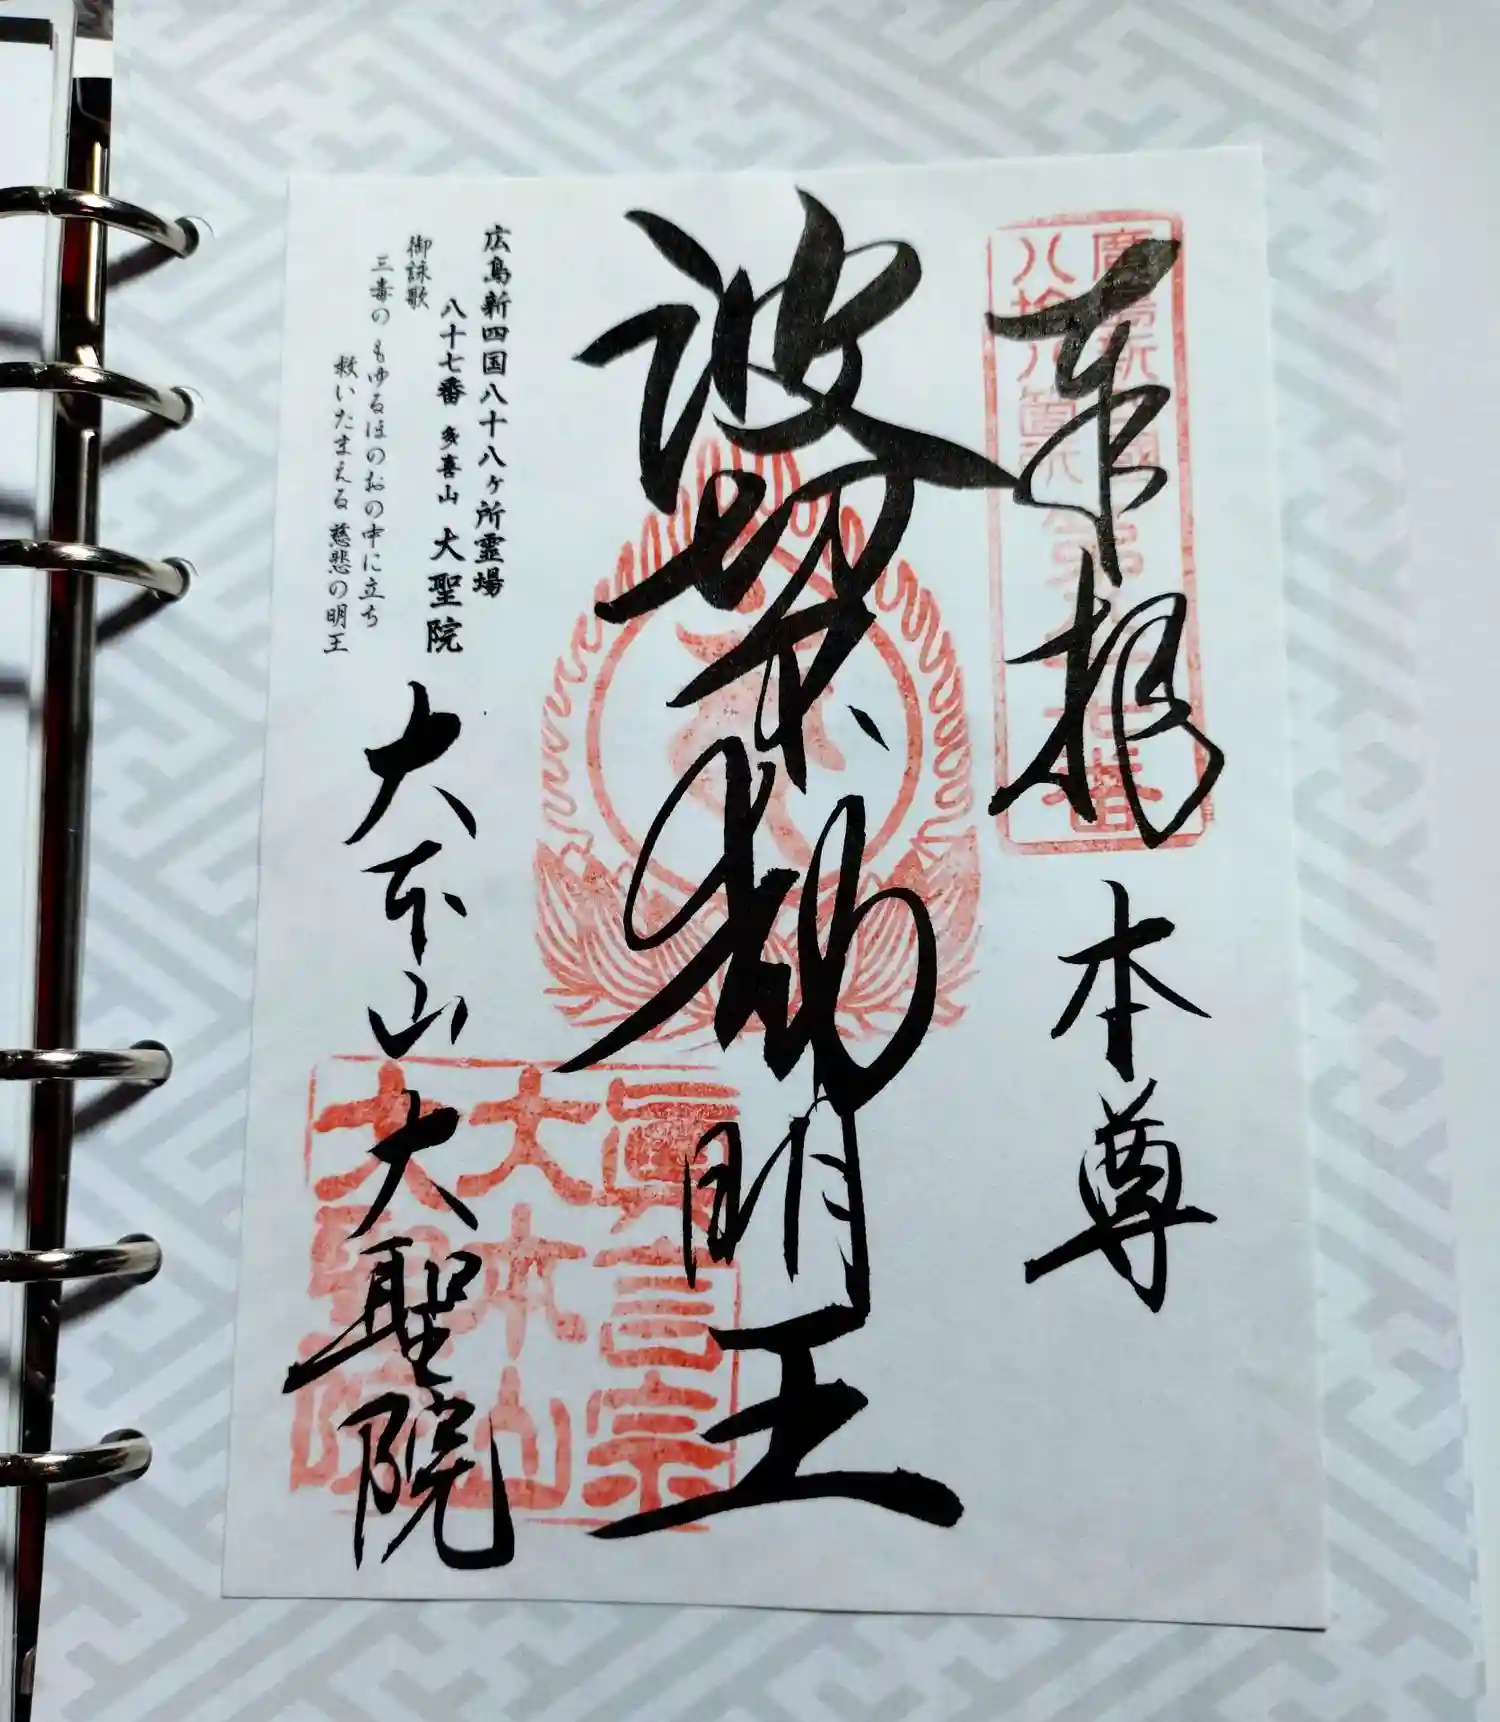 奉拝 本尊
波切不動明王
大本山 大聖院
広島新四国八十八ヶ所霊場
八十七番 多喜山 大聖院
御詠歌
三毒の もゆるほのおの中に立ち
救いたまえる慈悲の明王
眞言宗
大本山
大聖院